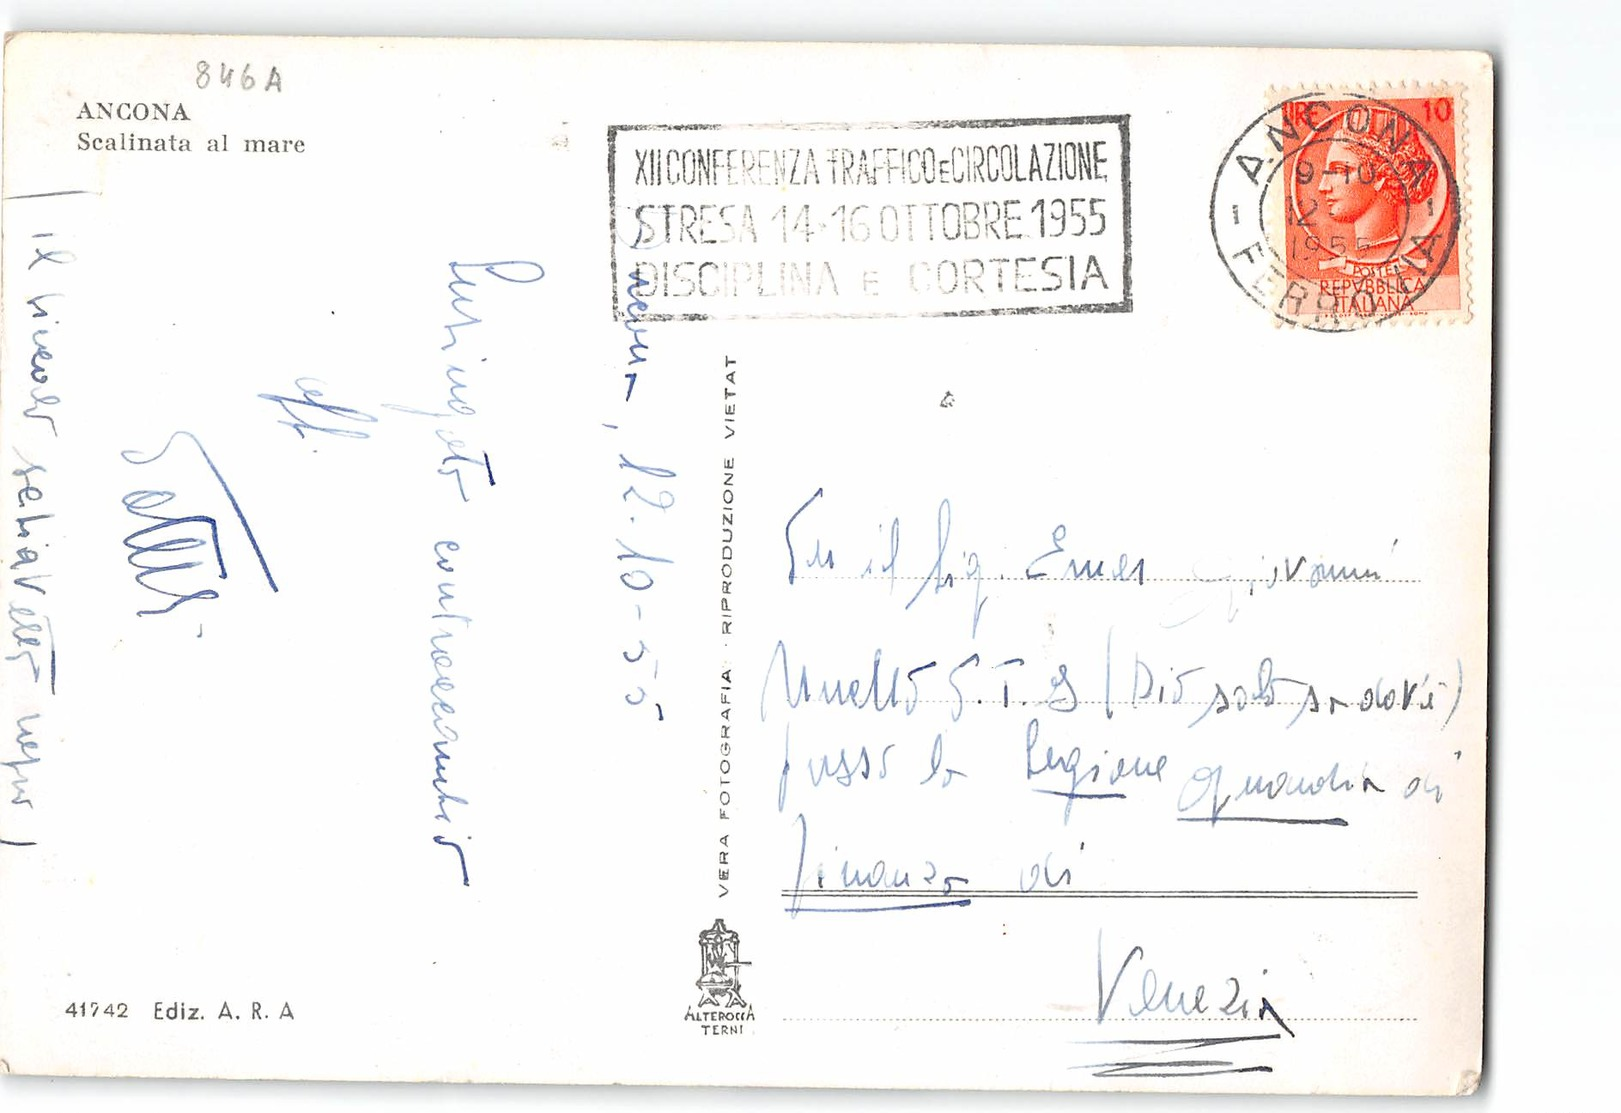 846A
ANCONA
Scalinata al mare
XII CONFERENZA TRAFFICO E CIRCOLAZIONE
STRESA 14-16 OTTOBRE 1955
DISCIPLINA E CORTESIA
ANCONA
FERROVIA
9-10
12
1955
LIRE 10
POSTE
REPVBBLICA
ITALIANA
Ancona, 12-10-55
contraccambio
aff.
il piccolo
VERA FOTOGRAFIA - RIPRODUZIONE VIETAT
il Sig. Emer Giovanni
(Dio solo sa dov'è)
presso la Legione Guardia di
Finanza di
Venezia
41742 Ediz. A. R. A
ALTEROCCA
TERNI